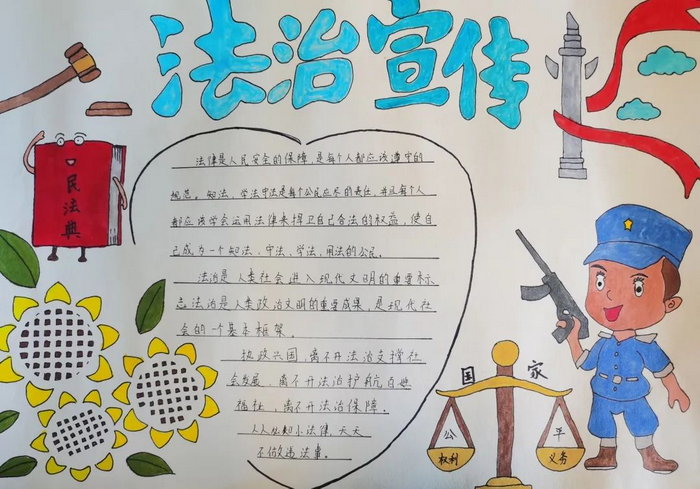 法治宣传
民法典
法律是人民安全的保障，是每个人都应该遵守的
规范。知法、学法守法是每个公民应尽的责任，并且每个人
都应该学会运用法律来捍卫自己合法的权益，使自
己成为一个知法、守法、学法、用法的公民。
法治是人类社会进入现代文明的重要标
志法治是人类政治文明的重要成果，是现代社
会的一个基本框架。
执政兴国，离不开法治支撑社
会发展，离不开法治护航百姓
福祉，离不开法治保障。
人人必知小法律，天天
不做违法事。
国家
公平
权利 义务